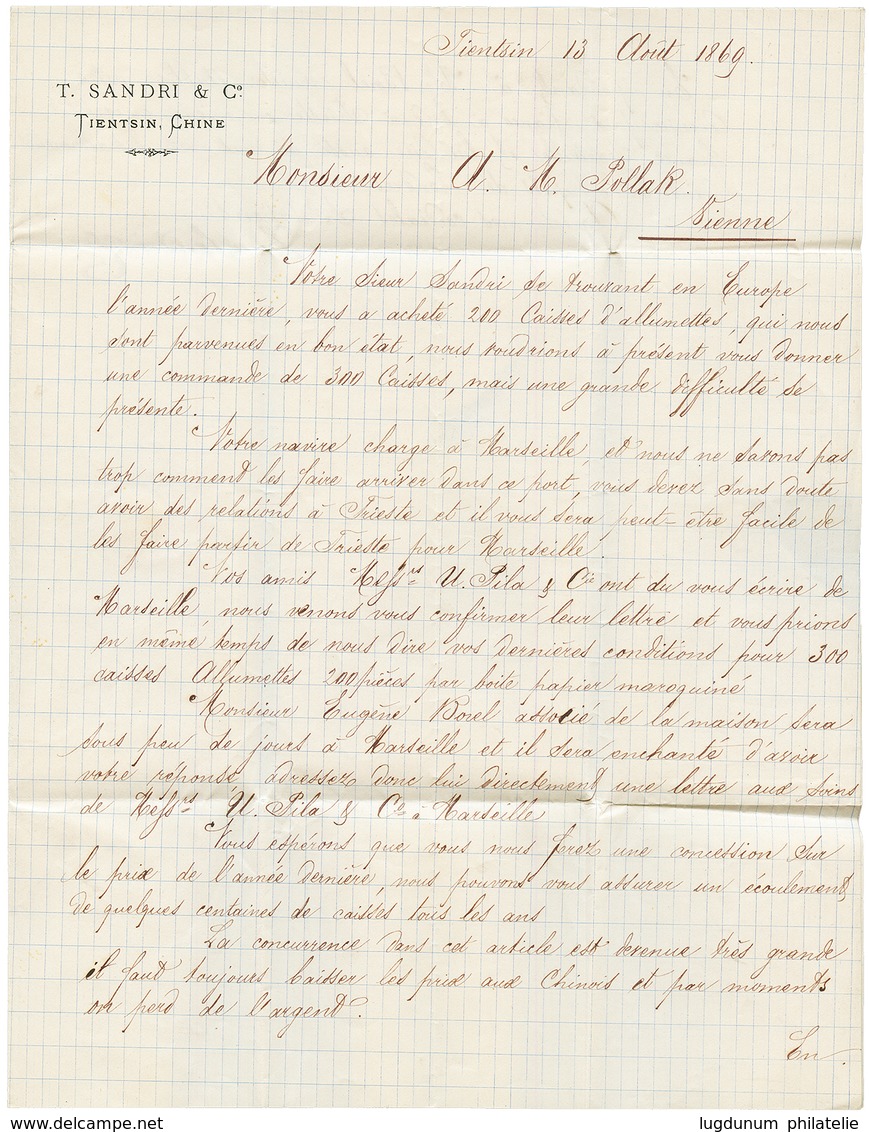 Tientsin 13 Août 1869.
T. SANDRI & Co.
TIENTSIN, CHINE
Monsieur A. M. Pollak.
Vienne
Notre Sieur Sandri se trouvant en Europe
l'année dernière, vous a acheté 200 Caisses d'allumettes, qui nous
sont parvenues en bon état, nous voudrions à présent vous donner
une commande de 300 Caisses, mais une grande difficulté se
présente.
Notre navire charge à Marseille, et nous ne savons pas
trop comment les faire arriver dans ce port, vous devez sans doute
avoir des relations à Trieste et il vous sera, peut-être facile de
les faire partir de Trieste pour Marseille.
Vos amis Messrs U. Pila & Cie ont du vous écrire de
Marseille, nous venons vous confirmer leur lettre et vous prions
en même temps de nous dire vos dernières conditions pour 300
caisses Allumettes 200 pièces par boite papier maroquiné
Monsieur Eugène Borel associé de la maison sera
sous peu de jours à Marseille et il sera enchanté d'avoir
votre réponse, adressez donc lui directement une lettre aux soins
de Messrs U. Pila & Co à Marseille
Nous espérons que vous nous ferez une concession sur
le prix de l'année dernière, nous pouvons vous assurer un écoulement
de quelques centaines de caisses tous les ans
La concurrence dans cet article est devenue très grande
il faut toujours baisser les prix aux Chinois et par moments
on perd de l'argent.
En
www.delcampe.net
lugdunum philatelie